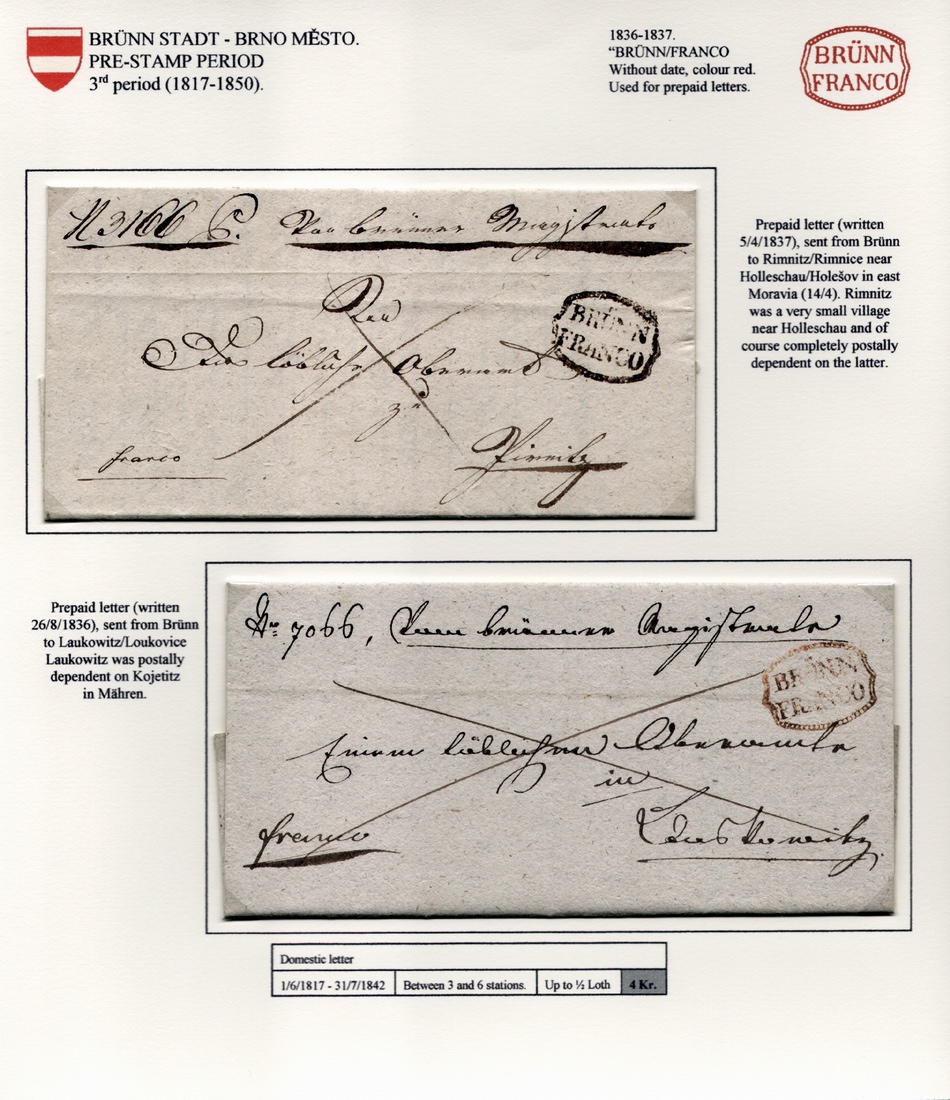 BRÜNN STADT - BRNO MĚSTO.
PRE-STAMP PERIOD
3rd period (1817-1850).
1836-1837.
“BRÜNN/FRANCO
Without date, colour red.
Used for prepaid letters.
BRÜNN
FRANCO
N 3166 P. Vom brünner Magistrate
Das löbliche Oberamt
zu
Pirnitz
franco
BRÜNN
FRANCO
Prepaid letter (written
5/4/1837), sent from Brünn
to Rimnitz/Rimnice near
Holleschau/Holešov in east
Moravia (14/4). Rimnitz
was a very small village
near Holleschau and of
course completely postally
dependent on the latter.
Prepaid letter (written
26/8/1836), sent from Brünn
to Laukowitz/Loukovice
Laukowitz was postally
dependent on Kojetitz
in Mähren.
Nro 7066, Vom brünner Magistrate
BRÜNN
FRANCO
Einem löblichen Oberamte
in
franco
Domestic letter
1/6/1817 - 31/7/1842 Between 3 and 6 stations. Up to ½ Loth 4 Kr.